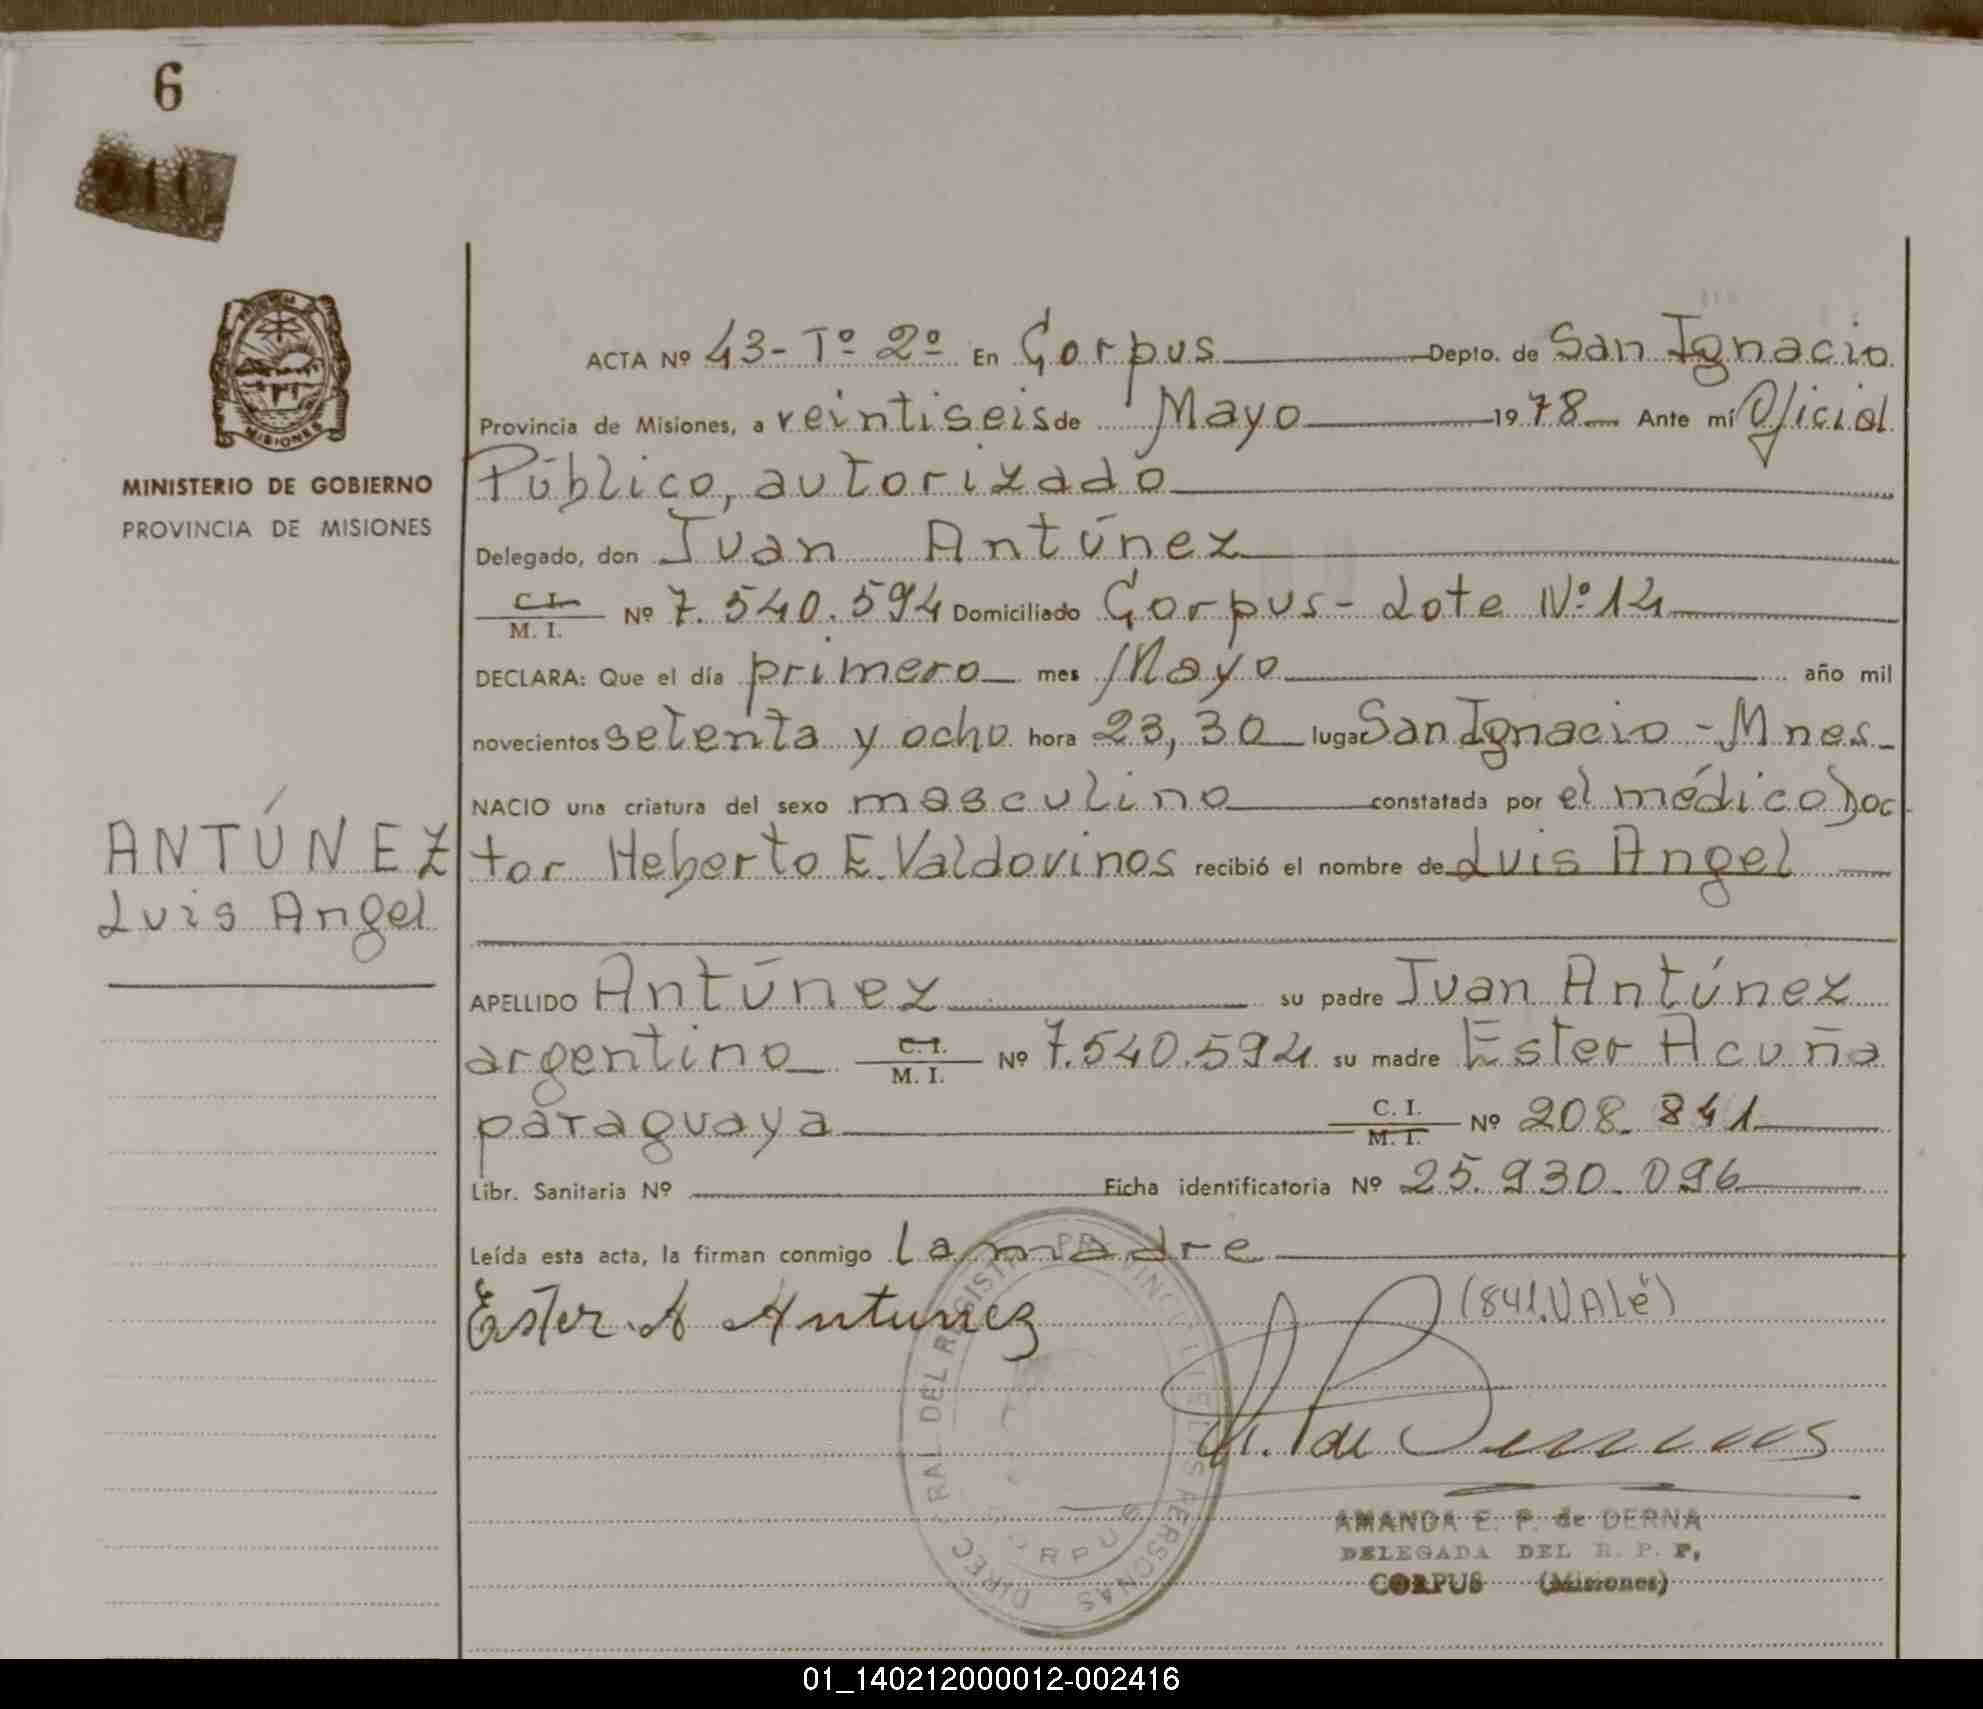 6
MINISTERIO DE GOBIERNO
PROVINCIA DE MISIONES
ANTÚNEZ
Luis Angel
ACTA Nº 43- Tº 2º En Corpus Depto. de San Ignacio
Provincia de Misiones, a veintiseis de Mayo 1978 Ante mí Oficial
Público, autorizado
Delegado, don Juan Antúnez
C. I. / M. I. Nº 7.540.594 Domiciliado Corpus- Lote Nº 14
DECLARA: Que el día primero mes Mayo año mil
novecientos setenta y ocho hora 23,30 lugar San Ignacio - Mnes-
NACIO una criatura del sexo masculino constatada por el médico Doc
tor Heberto E. Valdovinos recibió el nombre de Luis Angel
APELLIDO Antúnez su padre Juan Antúnez
argentino C. I. / M. I. Nº 7.540.594 su madre Ester Acuña
paraguaya C. I. / M. I. Nº 208.841
Libr. Sanitaria Nº Ficha identificatoria Nº 25.930.096
Leída esta acta, la firman conmigo la madre
Ester A Antunez (841.VAlé)
AMANDA E. P. de DERNA
DELEGADA DEL R. P. P.
CORPUS (Misiones)
01_140212000012-002416